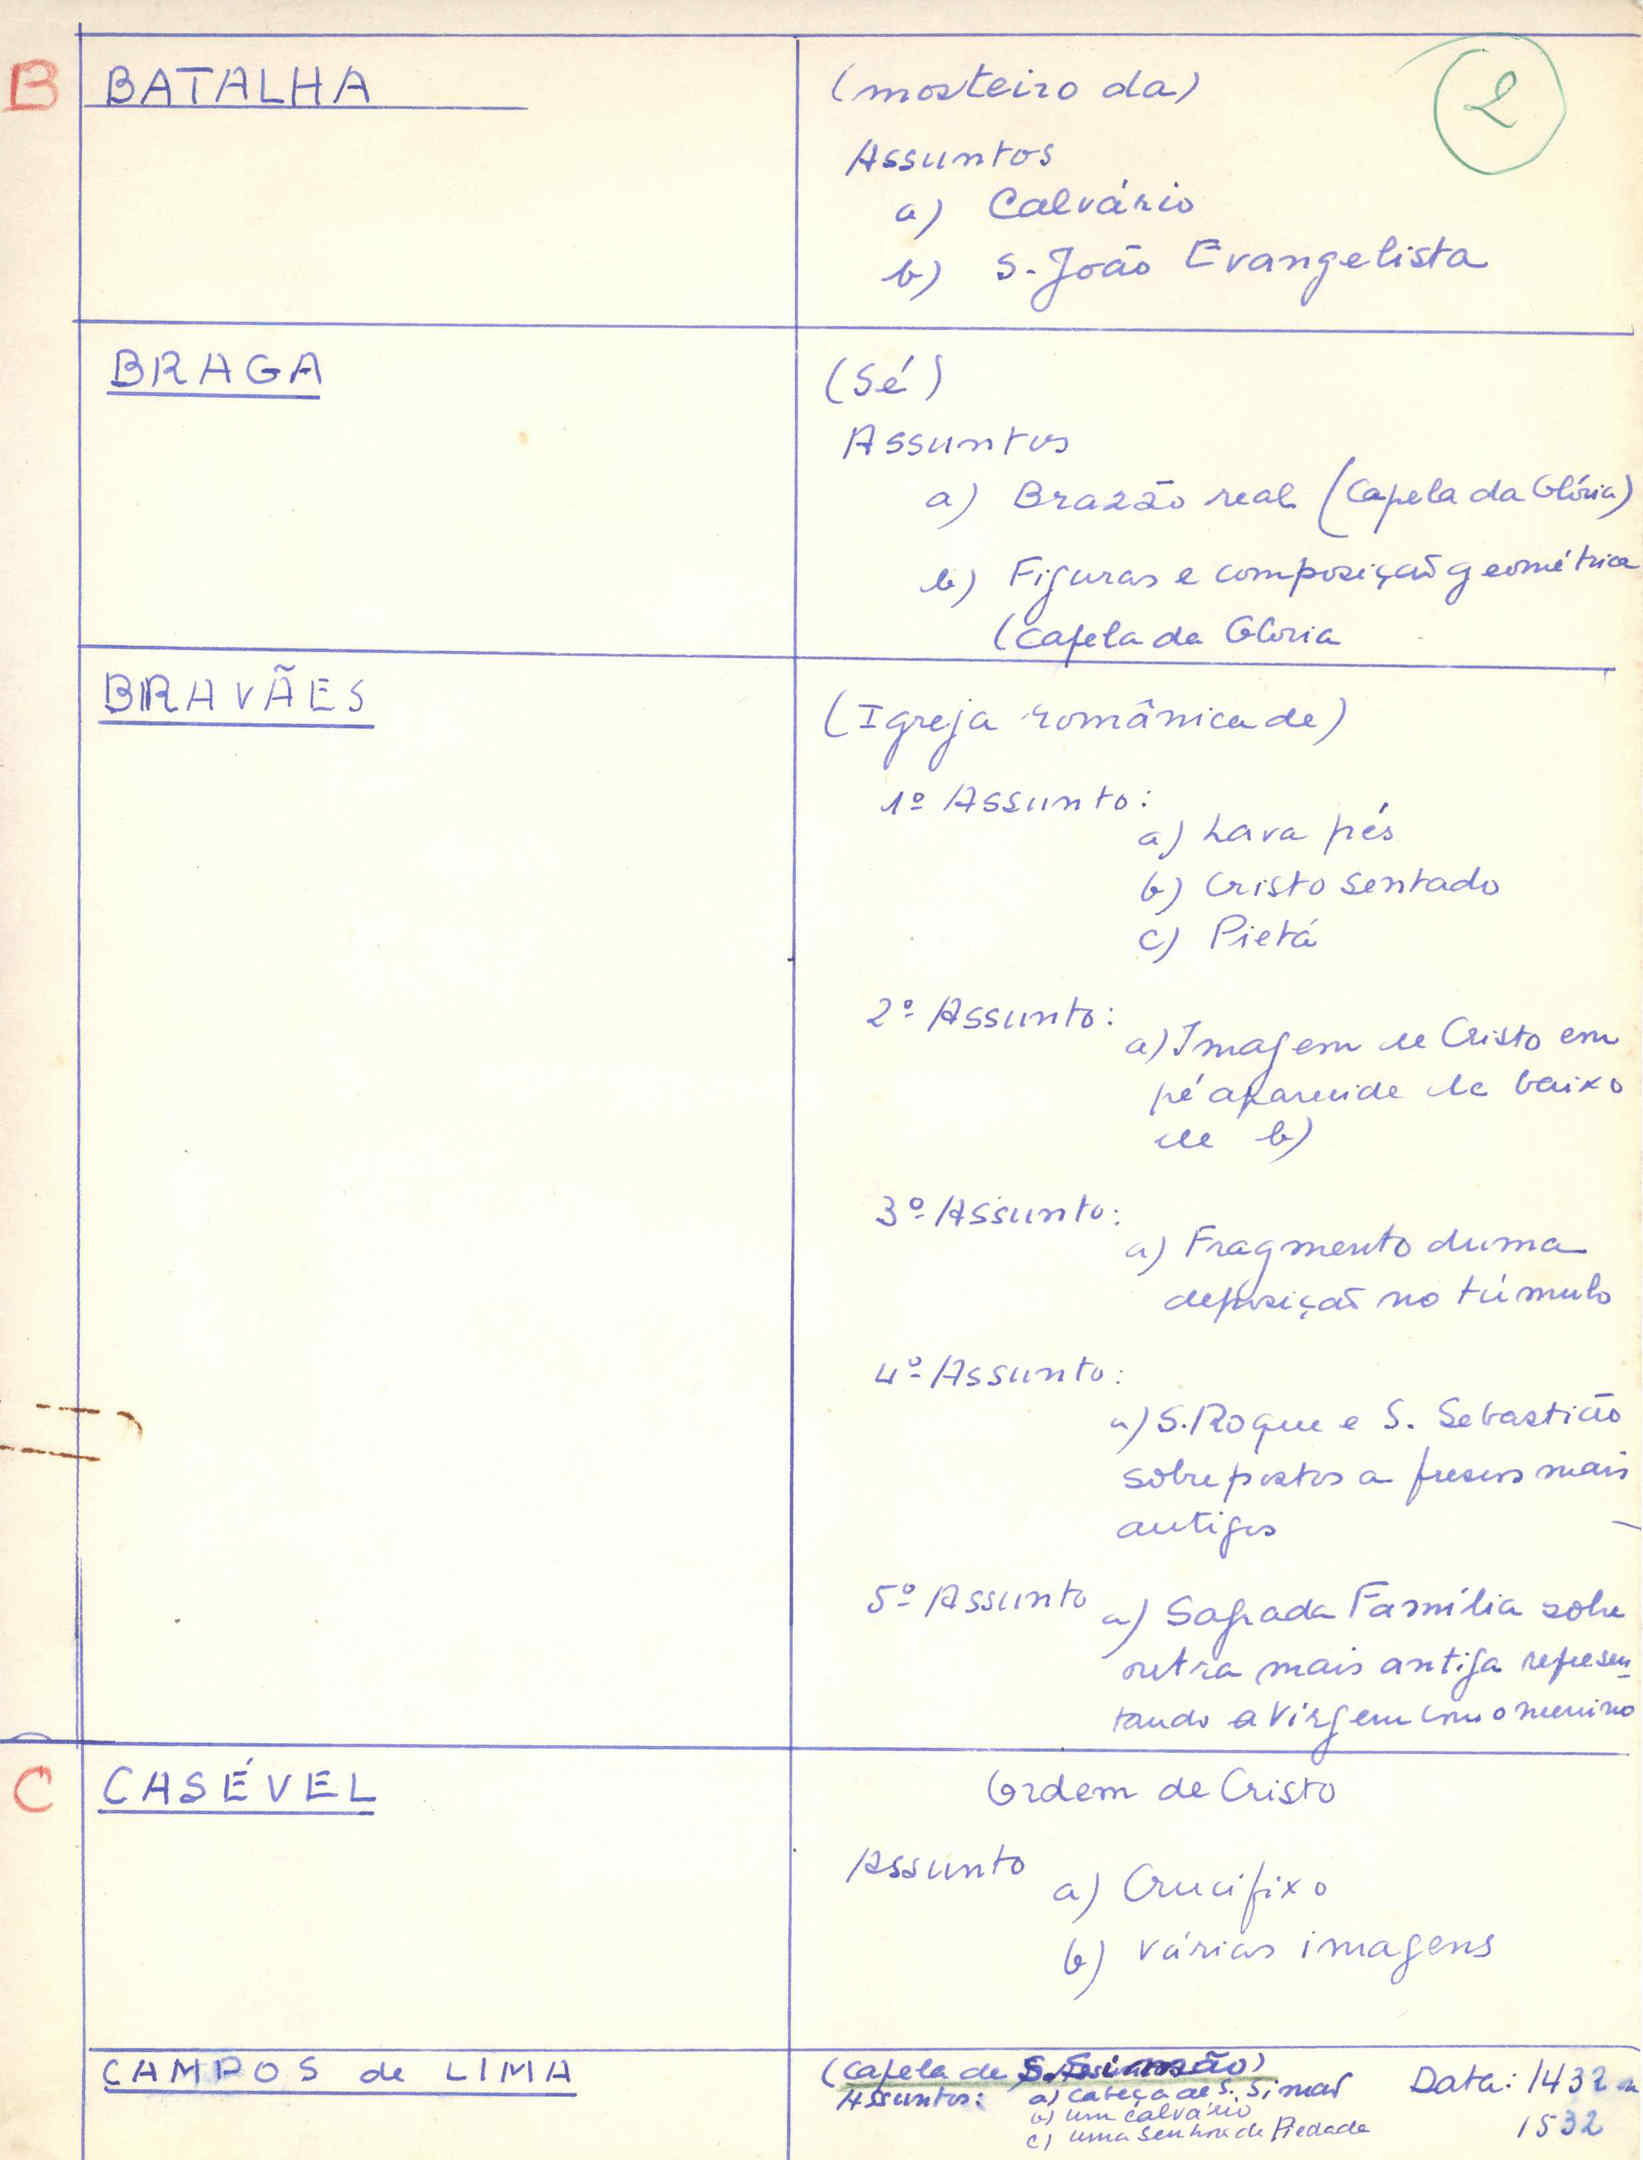 2
B BATALHA (mosteiro da)
Assuntos
a) Calvário
b) S. João Evangelista
BRAGA (Sé)
Assuntos
a) Brazão real (Capela da Glória)
b) Figuras e composição geométrica
(Capela da Gloria
BRAVÃES (Igreja românica de)
1º Assunto:
a) Lava pés
b) Cristo sentado
c) Pietá
2º Assunto:
a) Imagem de Cristo em
pé aparecida de baixo
de b)
3º Assunto:
a) Fragmento duma
deposição no túmulo
4º Assunto:
a) S. Roque e S. Sebastião
sobrepostos a frescos mais
antigos
5º Assunto a) Sagrada Família sobre
outra mais antiga represen
tando a Virgem com o menino
C CASÉVEL Ordem de Cristo
Assunto
a) Crucifixo
b) várias imagens
CAMPOS de LIMA (Capela de
Assuntos: a) Cabeça de S. Simão Data: 1432
b) um Calvário 1532
c) uma Senhora da Piedade